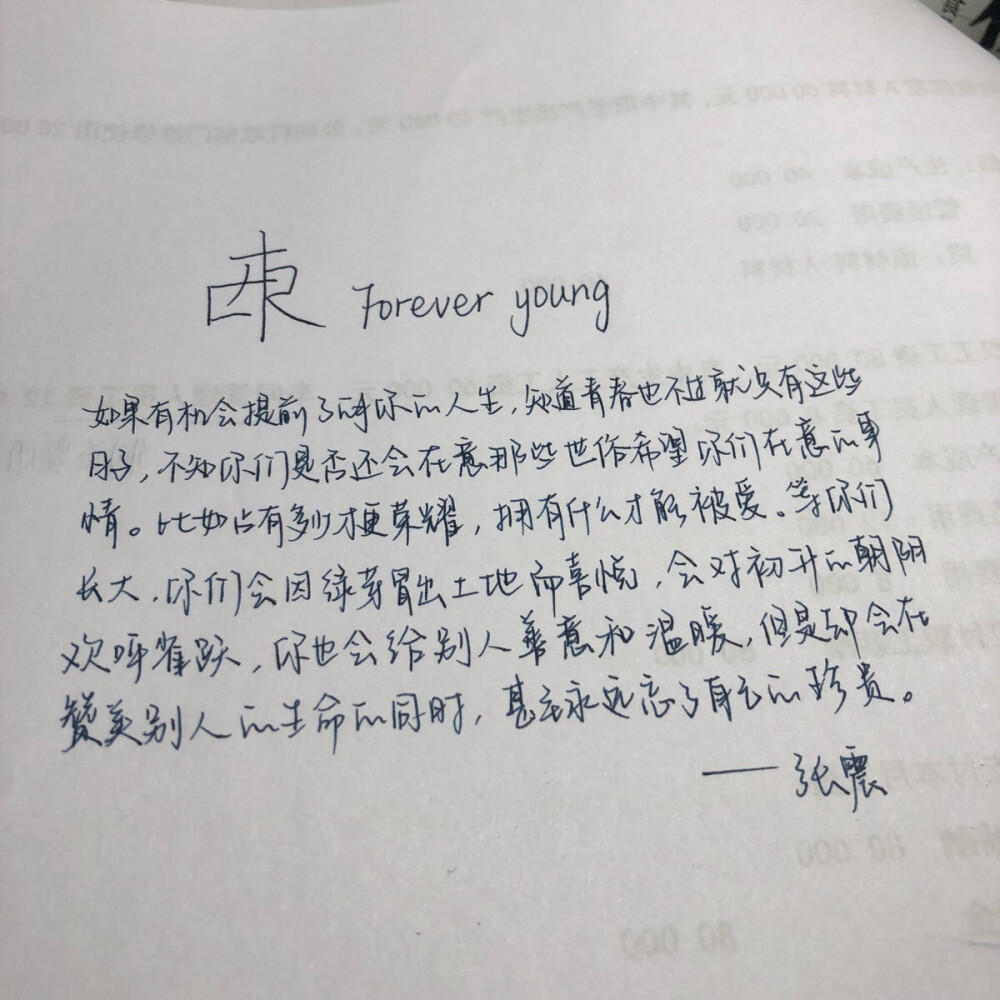 Forever young
如果有机会提前了解你的人生，知道青春也不过就只有这些
日子，不知你们是否还会在意那些世俗希望你们在意的事
情。比如占有多少才更荣耀，拥有什么才能被爱。等你们
长大，你们会因绿芽冒出土地而喜悦，会对初升的朝阳
欢呼雀跃，你也会给别人善意和温暖，但是却会在
赞美别人的生命的同时，甚至永远忘了自己的珍贵。
——张震